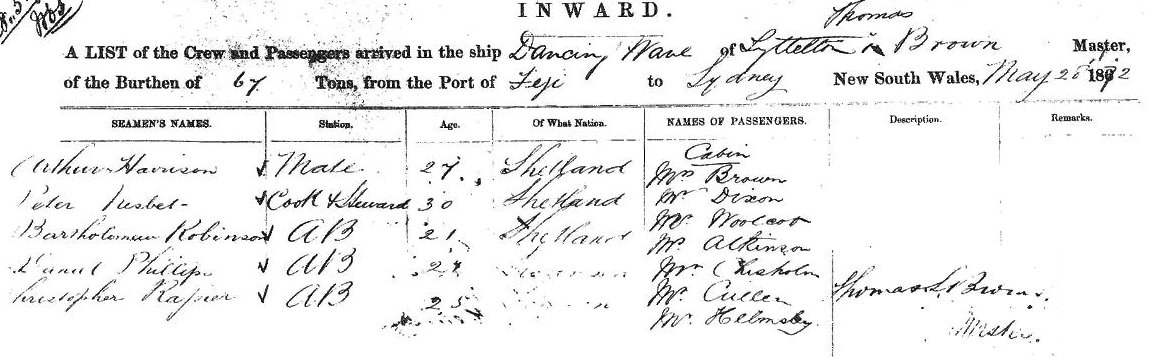 INWARD.
Thomas
A LIST of the Crew and Passengers arrived in the ship Dancing Wave of Lyttelton Brown Master,
of the Burthen of 67 Tons, from the Port of Feji to Sydney New South Wales, May 1872
SEAMEN'S NAMES. Station. Age. Of What Nation. NAMES OF PASSENGERS. Description. Remarks.
Cabin
Arthur Harrison Mate 27 Shetland Mrs Brown
Peter Nisbet Cook & Steward 30 Shetland Mr Dixon
Mr Woolcot
Bartholomew Robinson AB 21 Shetland Mr Atkinson
Daniel Phillips AB Chisholm
Christopher AB 25 Mr Cullen Thomas Brown
Mr Helmsby Master.